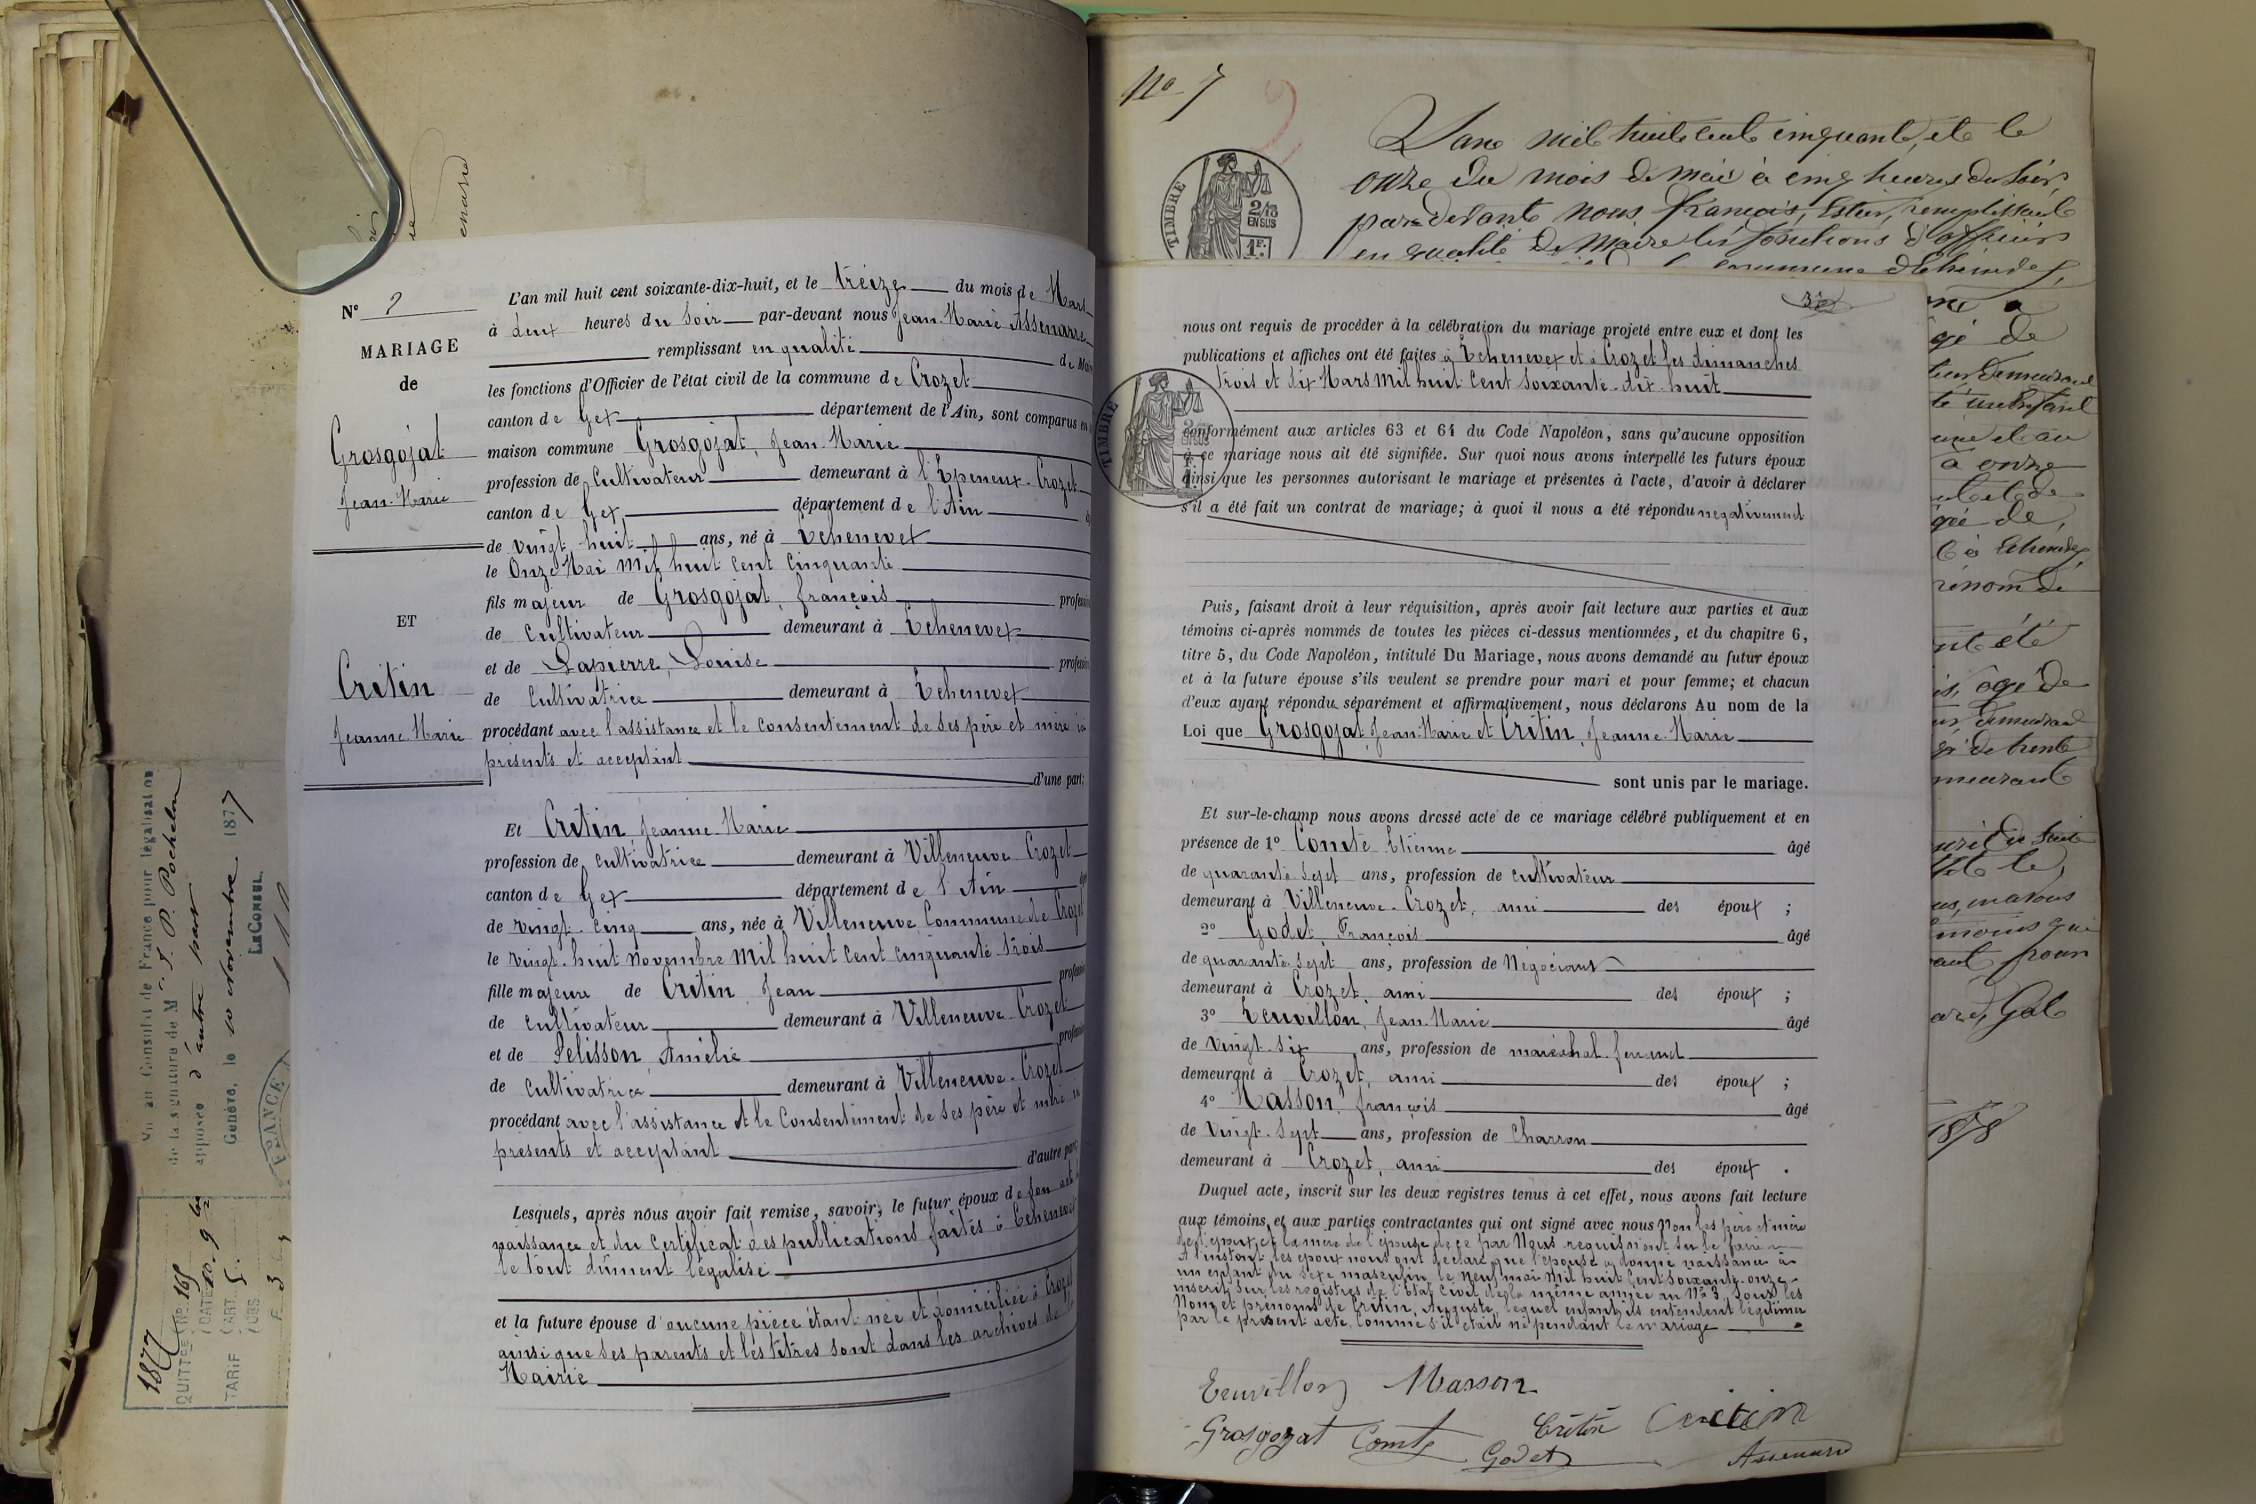 Nº 2
MARIAGE
de
Grosgojat
Jean-Marie
ET
Critin
Jeanne-Marie
L'an mil huit cent soixante-dix-huit, et le treize du mois de Mars
à deux heures du Soir par-devant nous Jean-Marie Assenarre
remplissant en qualité de Mai
les fonctions d'Officier de l'état civil de la commune de Crozet
canton de Gex département de l'Ain, sont comparus en
maison commune Grosgojat, Jean-Marie
profession de Cultivateur demeurant à l'Epeneux-Crozet
canton de Gex département de l'Ain
de vingt-huit ans, né à Echenevex
le Onze Mai Mil huit Cent Cinquante
fils majeur de Grosgojat, françois profession
de Cultivateur demeurant à Echenevex
et de Lapierre, Louise profession
de Cultivatrice demeurant à Echenevex
procédant avec l'assistance et le consentement de ses père et mère ici
présents et acceptant
d'une part;
Et Critin Jeanne-Marie
profession de Cultivatrice demeurant à Villeneuve-Crozet
canton de Gex département de l'Ain
de vingt-cinq ans, née à Villeneuve Commune de Crozet
le vingt-huit Novembre Mil huit Cent Cinquante-trois
fille majeure de Critin, Jean profession
de Cultivateur demeurant à Villeneuve-Crozet
et de Pelisson, Amélie profession
de Cultivatrice demeurant à Villeneuve-Crozet
procédant avec l'assistance et le Consentement de ses père et mère ici
présents et acceptant d'autre part;
Lesquels, après nous avoir fait remise, savoir; le futur époux de son acte de
naissance et du Certificat des publications faites à Echenevex
le tout dûment légalisé
et la future épouse d'aucune pièce étant née et domiciliée à Crozet
ainsi que ses parents et les titres sont dans les archives de la
Mairie
Vu au Consulat de France pour légalisation
de la signature de M J. P. Pochelon
apposée d'autre part
Genève, le 10 Novembre 1877
LE CONSUL,
FRANCE
1877
QUITTCE Nº 165
DATE 10. 9bre
TARIF ART. 5.
3
Nº 7
TIMBRE
2/10
EN SUS
1F.
L'an mil huit cent cinquante, et le
onze du mois de mai à cinq heures du soir,
par-devant nous françois, Estier, remplissant
en qualité de Maire les fonctions d'officier
commune d'Echenevex,
gé de
demeurant
une et au
à onze
et de
gé de,
à Echenevex,
rénom de
nt été
is, âgé de
demeurant
gé de trente
meurant
moins qui
ant pour
1878
nous ont requis de procéder à la célébration du mariage projeté entre eux et dont les
publications et affiches ont été faites à Echenevex et à Crozet les dimanches
trois et dix Mars Mil huit Cent Soixante-dix-huit
TIMBRE
conformément aux articles 63 et 64 du Code Napoléon, sans qu'aucune opposition
à ce mariage nous ait été signifiée. Sur quoi nous avons interpellé les futurs époux
ainsi que les personnes autorisant le mariage et présentes à l'acte, d'avoir à déclarer
s'il a été fait un contrat de mariage; à quoi il nous a été répondu négativement
Puis, faisant droit à leur réquisition, après avoir fait lecture aux parties et aux
témoins ci-après nommés de toutes les pièces ci-dessus mentionnées, et du chapitre 6,
titre 5, du Code Napoléon, intitulé Du Mariage, nous avons demandé au futur époux
et à la future épouse s'ils veulent se prendre pour mari et pour femme; et chacun
d'eux ayant répondu séparément et affirmativement, nous déclarons Au nom de la
Loi que Grosgojat, Jean-Marie et Critin, Jeanne-Marie
sont unis par le mariage.
Et sur-le-champ nous avons dressé acte de ce mariage célébré publiquement et en
présence de 1º Comte Etienne âgé
de quarante-sept ans, profession de Cultivateur
demeurant à Villeneuve-Crozet, ami des époux ;
2º Godet, François âgé
de quarante-sept ans, profession de Négociant
demeurant à Crozet, ami des époux ;
3º Teuvillon, Jean-Marie âgé
de vingt-six ans, profession de maréchal-ferrand
demeurant à Crozet, ami des époux ;
4º Masson, françois âgé
de vingt-sept ans, profession de Charron
demeurant à Crozet, ami des époux .
Duquel acte, inscrit sur les deux registres tenus à cet effet, nous avons fait lecture
aux témoins et aux parties contractantes qui ont signé avec nous Non les père et mère
de l'époux, et la mère de l'épouse, de ce par Nous requis n'ont su le faire
A l'instant les époux nous ont déclaré que l'épouse a donné naissance à
un enfant du sexe masculin le neuf mai Mil huit Cent Soixante-onze
inscrit sur les registres de l'Etat Civil de la même année au Nº 3, sous les
Nom et prénoms de Critin, Auguste, lequel enfant ils entendent légitimer
par le présent acte, Comme s'il était né pendant le mariage
Teuvillon Masson
Grosgozat Comte Critin Critin
Godet Assenarre